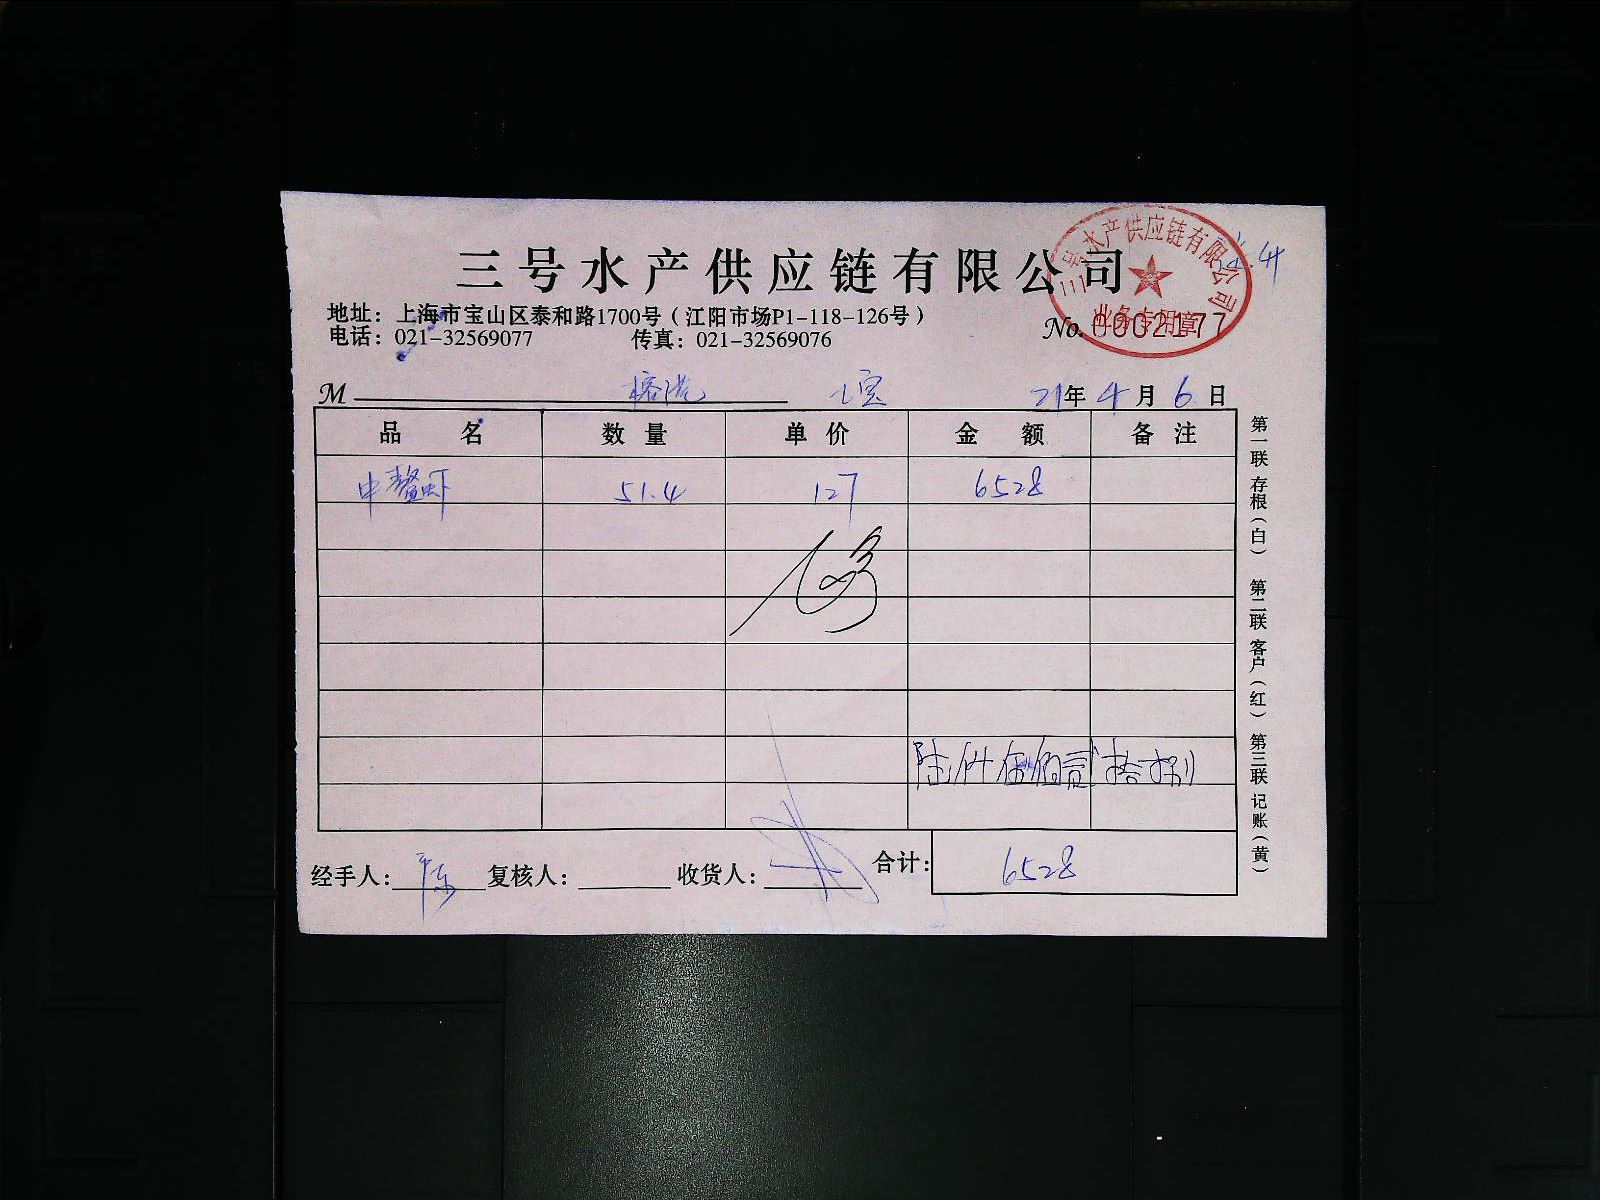 三号水产供应链有限公司
三号水产供应链有限公司
业务专用章
地址：上海市宝山区泰和路1700号（江阳市场P1-118-126号）
电话：021-32569077 传真：021-32569076
No. 0002177
M 榕港 七宝 21年4月6日
品名 数量 单价 金额 备注
中鳌虾 51.4 127 6528
陆仟伍佰贰拾捌
经手人： 复核人： 收货人： 合计： 6528
第一联 存根（白） 第二联 客户（红） 第三联 记账（黄）